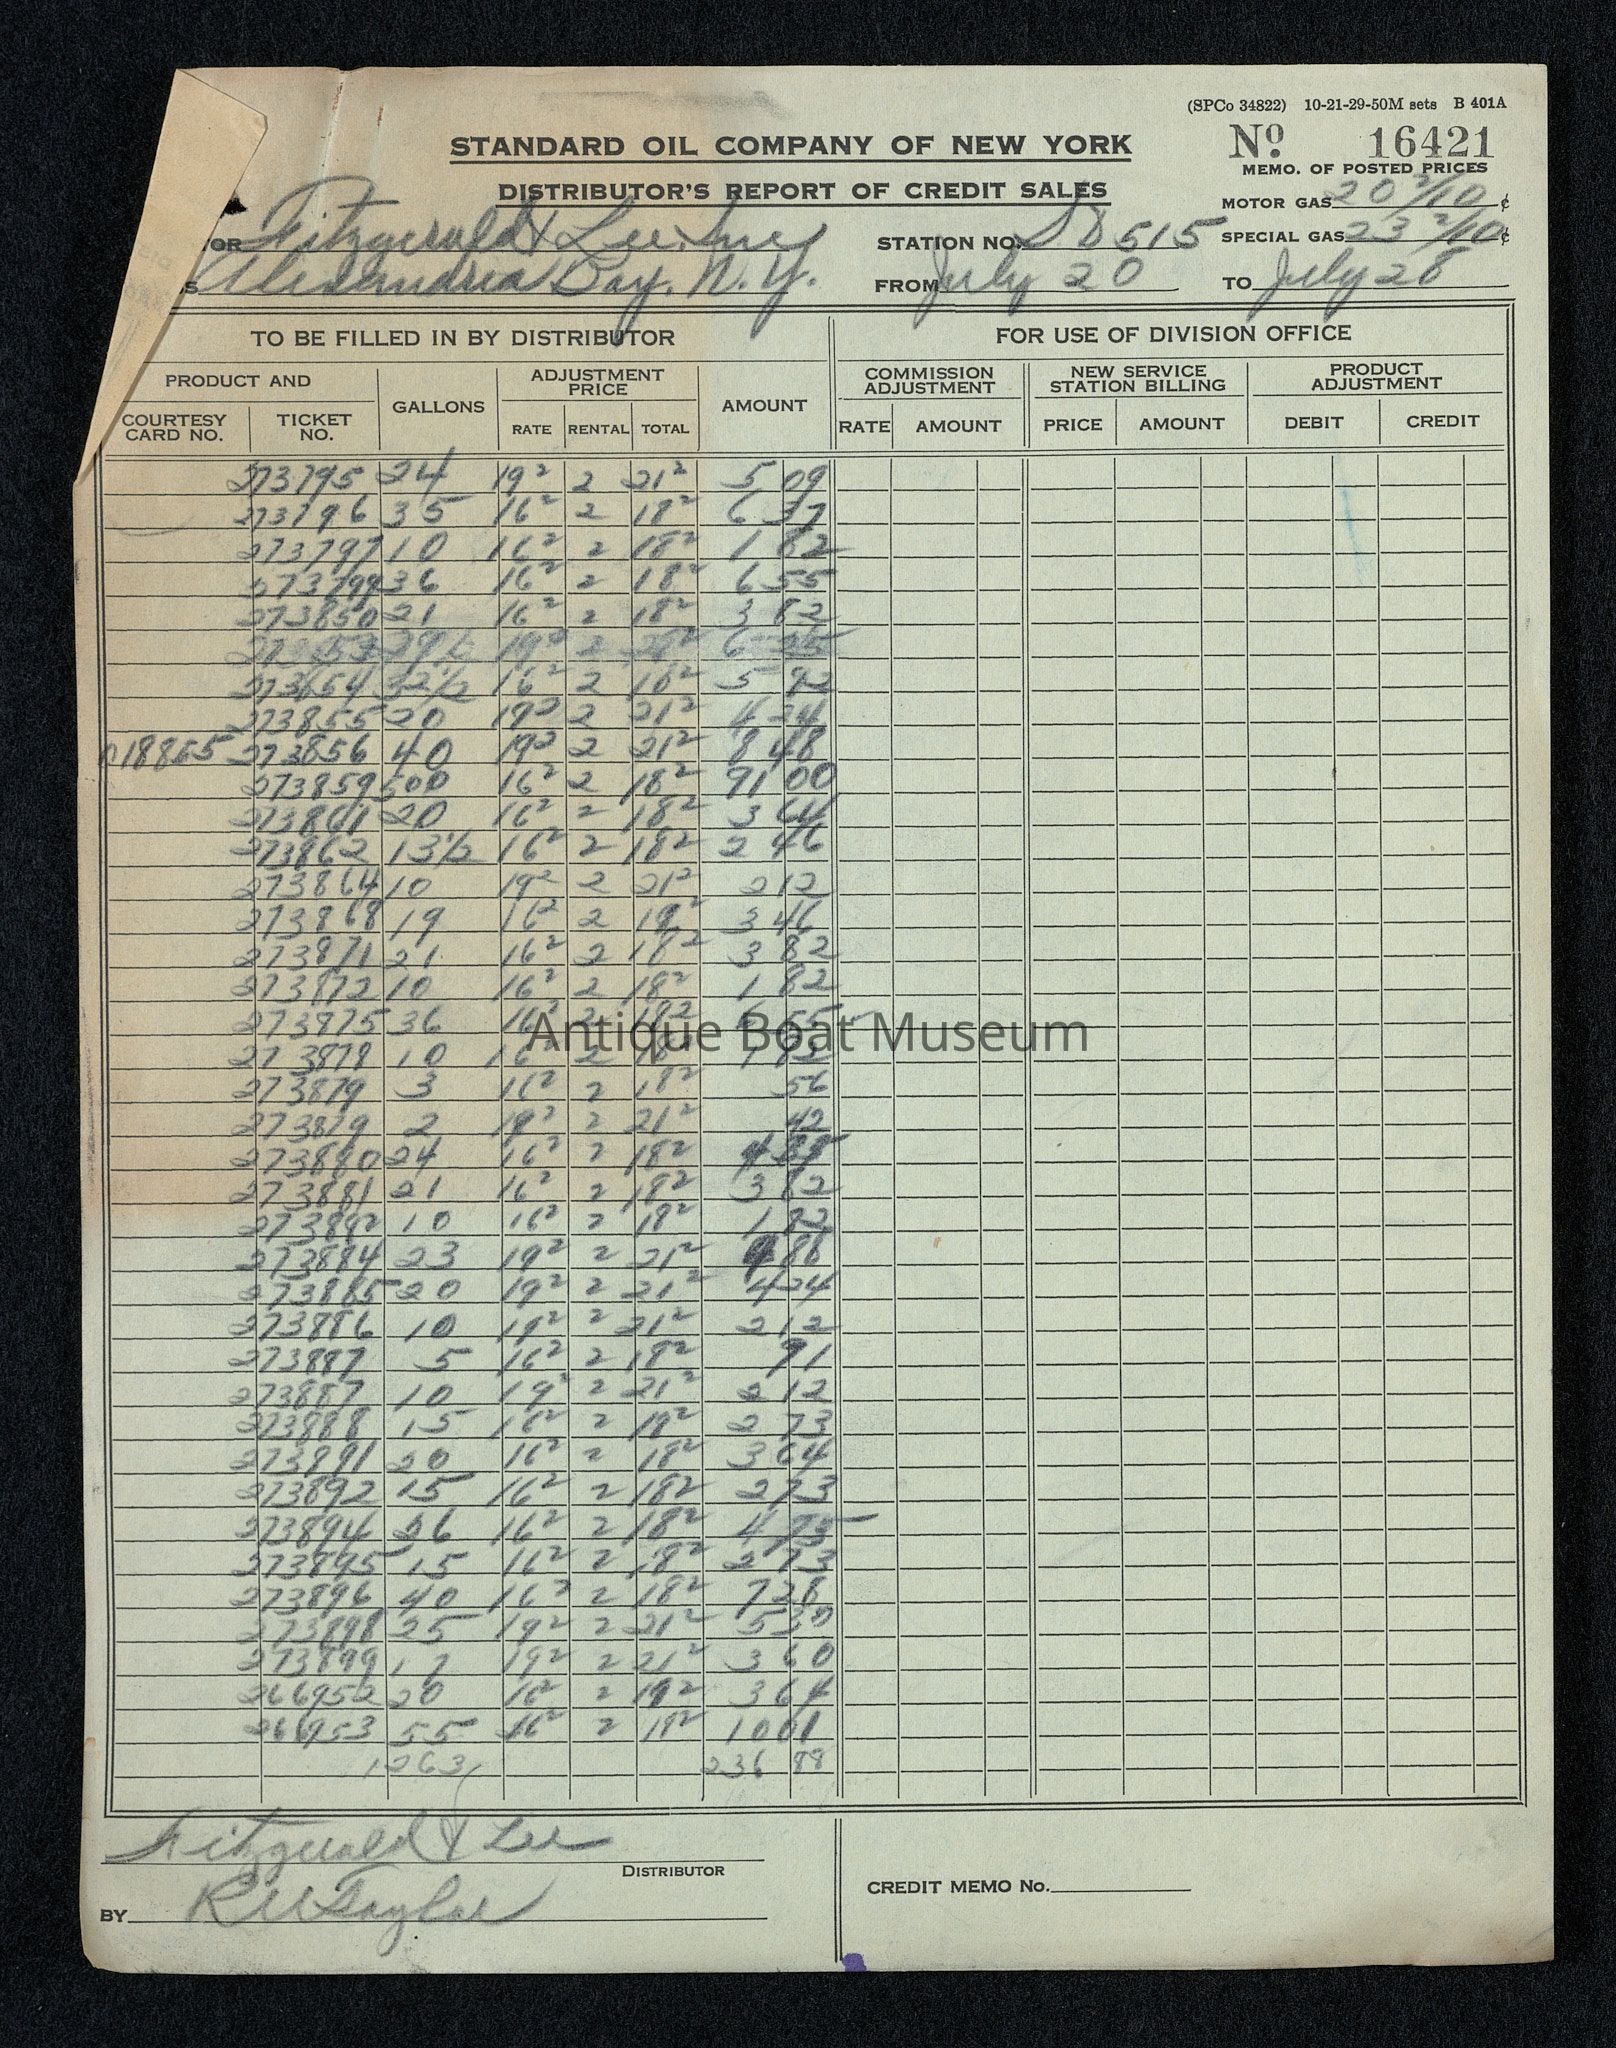 (SPCo 34822) 10-21-29-50M sets B 401A
STANDARD OIL COMPANY OF NEW YORK
Nº 16421
DISTRIBUTOR'S REPORT OF CREDIT SALES
MEMO. OF POSTED PRICES
MOTOR GAS 20 2/10 ¢
OR Fitzgerald & Lee, Inc STATION NO. S.D 515 SPECIAL GAS 23 2/10 ¢
S Alexandria Bay, N.Y. FROM July 20 TO July 28
TO BE FILLED IN BY DISTRIBUTOR FOR USE OF DIVISION OFFICE
PRODUCT AND GALLONS ADJUSTMENT PRICE AMOUNT COMMISSION ADJUSTMENT NEW SERVICE STATION BILLING PRODUCT ADJUSTMENT
COURTESY CARD NO. TICKET NO. RATE RENTAL TOTAL RATE AMOUNT PRICE AMOUNT DEBIT CREDIT
273795 24 19² 2 21² 5 09
273796 35 16² 2 18² 6 37
273797 10 16² 2 18² 1 82
273799 36 16² 2 18² 6 55
273850 21 16² 2 18² 3 82
29½ 19² 2 21² 6 25
273854 32½ 16² 2 18² 5 92
273855 20 19² 2 21² 4 24
018865 273856 40 19² 2 21² 8 48
273859 500 16² 2 18² 91 00
273861 20 16² 2 18² 3 64
273862 13½ 16² 2 18² 2 46
273864 10 19² 2 21² 2 12
273868 19 16² 2 18² 3 46
273871 21 16² 2 18² 3 82
273872 10 16² 2 18² 1 82
273875 36 16² 2 18² 6 55
273878 10 16² 2 18² 1 82
273879 3 16² 2 18² 56
273879 2 19² 2 21² 42
273880 24 16² 2 18²
273881 21 16² 2 18² 3 82
273882 10 16² 2 18² 1 82
273884 23 19² 2 21² 4 88
273885 20 19² 2 21² 4 24
273886 10 19² 2 21² 2 12
273887 5 16² 2 18² 91
273887 10 19² 2 21² 2 12
273888 15 16² 2 18² 2 73
273891 20 16² 2 18² 3 64
273892 15 16² 2 18² 2 73
273894 26 16² 2 18² 4 73
273895 15 16² 2 18² 2 73
273896 40 16² 2 18² 7 28
273898 25 19² 2 21² 5 30
273899 17 19² 2 21² 3 60
266952 20 16² 2 18² 3 64
266953 55 16² 2 18² 10 01
1263 236 88
Antique Boat Museum
Fitzgerald & Lee
DISTRIBUTOR
CREDIT MEMO No.
BY R W Taylor